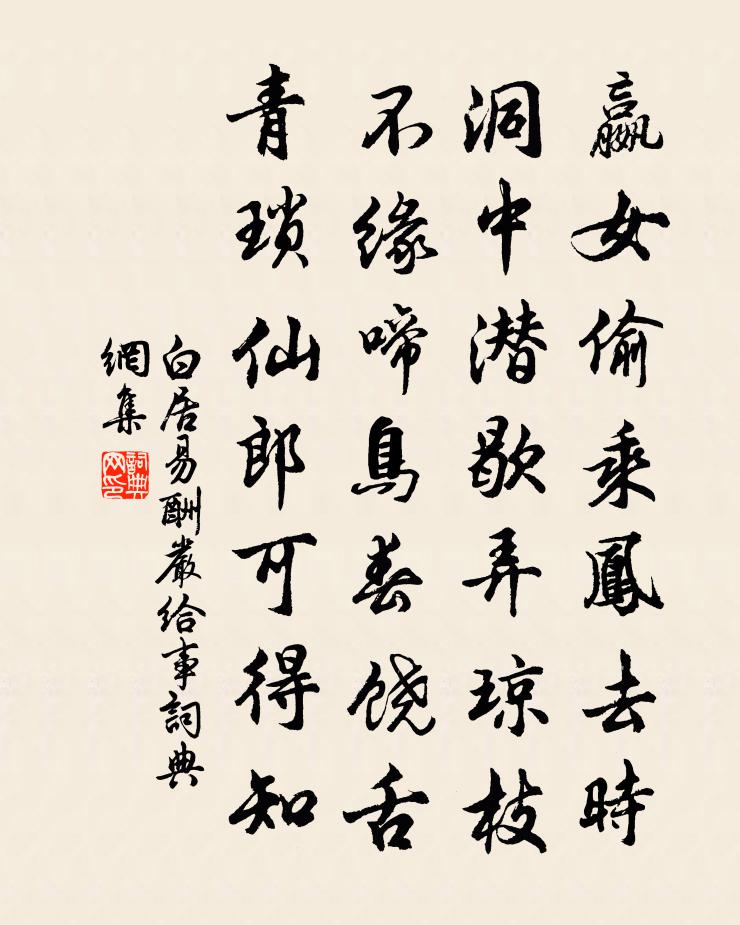 嬴女偷乘鳳去時
洞中潜歇弄琼枝
不緣啼鳥春饶舌
青瑣仙郎可得知
白居易酬嚴給事詞典
網集
詞典
网印